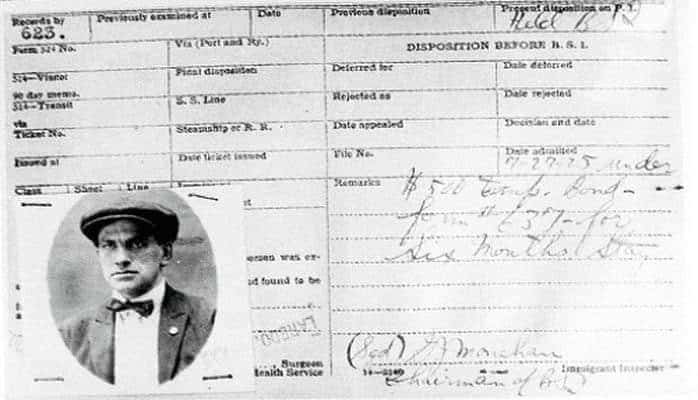 Records by Previously examined at Date Previous disposition Present disposition on P. I.
623. Held B
Form 524 No. Via (Port and Ry.) DISPOSITION BEFORE B. S. I.
514—Visitor Final disposition Deferred for Date deferred
90 day memo.
514—Transit S. S. Line Rejected as Date rejected
via
Ticket No. Steamship or R. R. Date appealed Decision and date
Issued at Date ticket issued File No. Date admitted
7-27-25 under
Class Sheet Line Remarks $500 Temp. Bond-
form for
six Months Stay
erson was ex-
d found to be
(Sgd) Monahan
Surgeon Immigrant Inspector
Health Service 14—2360 Chairman of